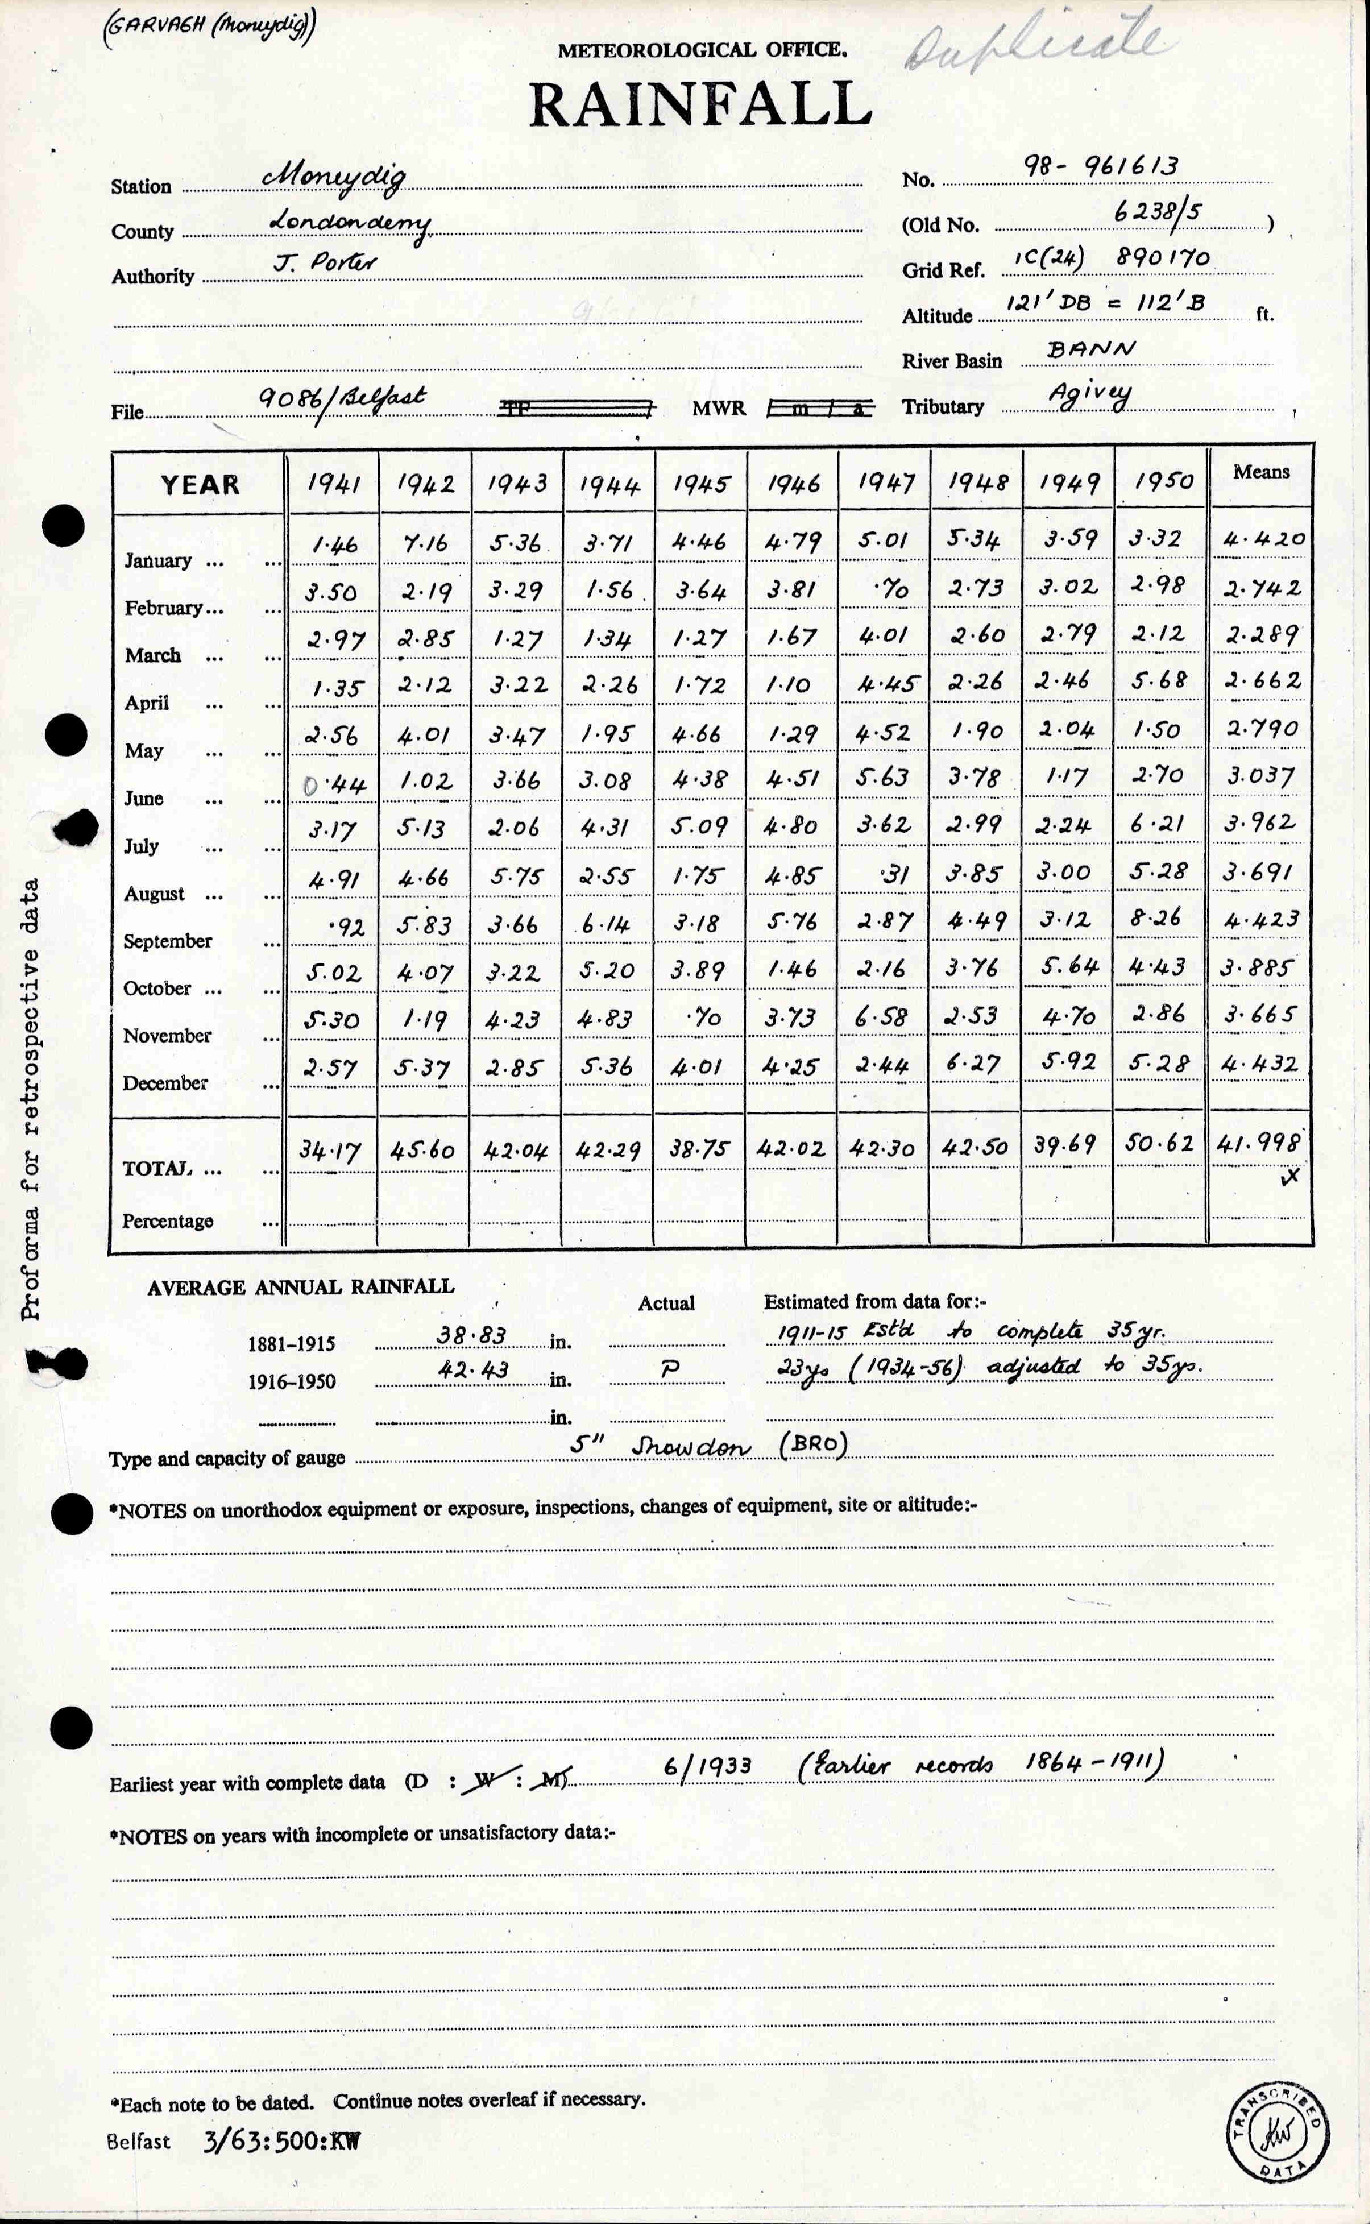 (GARVAGH (Moneydig))
Duplicate
METEOROLOGICAL OFFICE.
RAINFALL
Station Moneydig No. 98- 961613
County Londonderry (Old No. 6238/5 )
Authority J. Porter Grid Ref. 1C(24) 890170
Altitude 121' DB = 112' B ft.
River Basin BANN
File 9086/Belfast TF MWR m / a Tributary Agivey
YEAR 1941 1942 1943 1944 1945 1946 1947 1948 1949 1950 Means
January ... ... 1.46 7.16 5.36 3.71 4.46 4.79 5.01 5.34 3.59 3.32 4.420
February... ... 3.50 2.19 3.29 1.56 3.64 3.81 .70 2.73 3.02 2.98 2.742
March ... ... 2.97 2.85 1.27 1.34 1.27 1.67 4.01 2.60 2.79 2.12 2.289
April ... ... 1.35 2.12 3.22 2.26 1.72 1.10 4.45 2.26 2.46 5.68 2.662
May ... ... 2.56 4.01 3.47 1.95 4.66 1.29 4.52 1.90 2.04 1.50 2.790
June ... ... 0.44 1.02 3.66 3.08 4.38 4.51 5.63 3.78 1.17 2.70 3.037
July ... ... 3.17 5.13 2.06 4.31 5.09 4.80 3.62 2.99 2.24 6.21 3.962
August ... ... 4.91 4.66 5.75 2.55 1.75 4.85 .31 3.85 3.00 5.28 3.691
September ... .92 5.83 3.66 6.14 3.18 5.76 2.87 4.49 3.12 8.26 4.423
October ... ... 5.02 4.07 3.22 5.20 3.89 1.46 2.16 3.76 5.64 4.43 3.885
November ... 5.30 1.19 4.23 4.83 .70 3.73 6.58 2.53 4.70 2.86 3.665
December ... 2.57 5.37 2.85 5.36 4.01 4.25 2.44 6.27 5.92 5.28 4.432
TOTAL ... ... 34.17 45.60 42.04 42.29 38.75 42.02 42.30 42.50 39.69 50.62 41.998
Percentage ...
Proforma for retrospective data
AVERAGE ANNUAL RAINFALL Actual Estimated from data for:-
1881-1915 38.83 in. 1911-15 Est'd to complete 35yr.
1916-1950 42.43 in. P 23ys (1934-56) adjusted to 35ys.
in.
Type and capacity of gauge 5" Snowdon (BRO)
*NOTES on unorthodox equipment or exposure, inspections, changes of equipment, site or altitude:-
Earliest year with complete data (D : W : M) 6/1933 (Earlier records 1864-1911)
*NOTES on years with incomplete or unsatisfactory data:-
*Each note to be dated. Continue notes overleaf if necessary.
Belfast 3/63:500:KW
TRANSCRIBED
KW
DATA